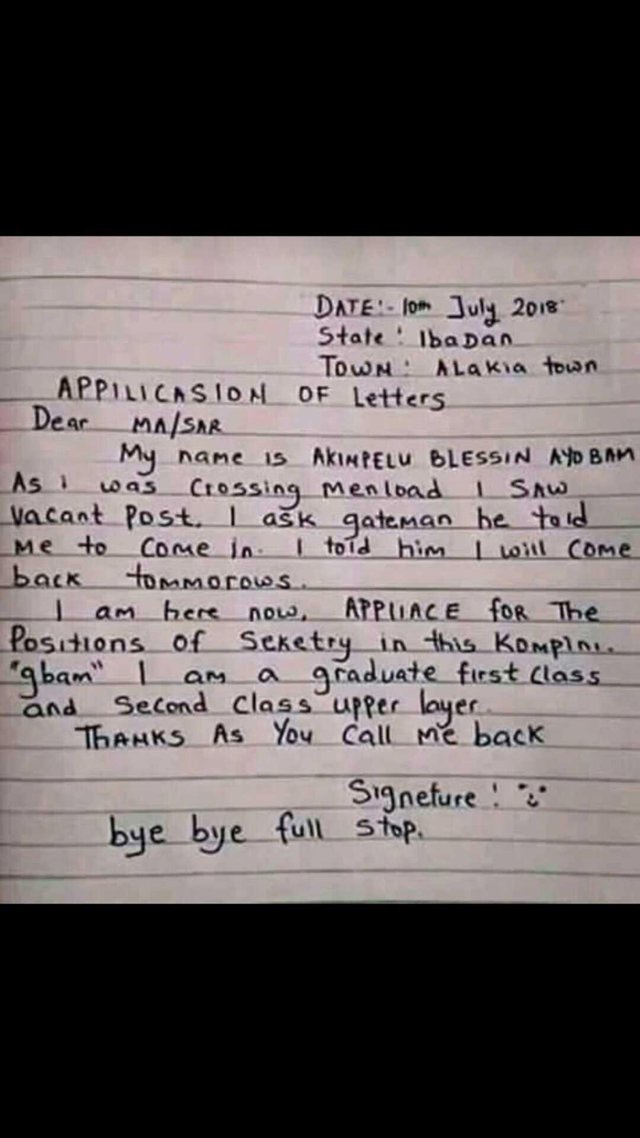 DATE:- 10th July 2018
State: IbaDan
TOWN: ALakia town
APPILICASION OF Letters
Dear MA/SAR
My name is AKINPELU BLESSIN AYOBAM
As i was crossing menload I SAW
vacant Post. I ask gateman he told
me to come in. I told him I will come
back tommorows.
I am here now, APPLIACE FOR The
Positions of Seketry in this Kompini.
"gbam" I am a graduate first class
and second class upper layer.
THANKS AS YOU Call Me back
Signeture:
bye bye full stop.